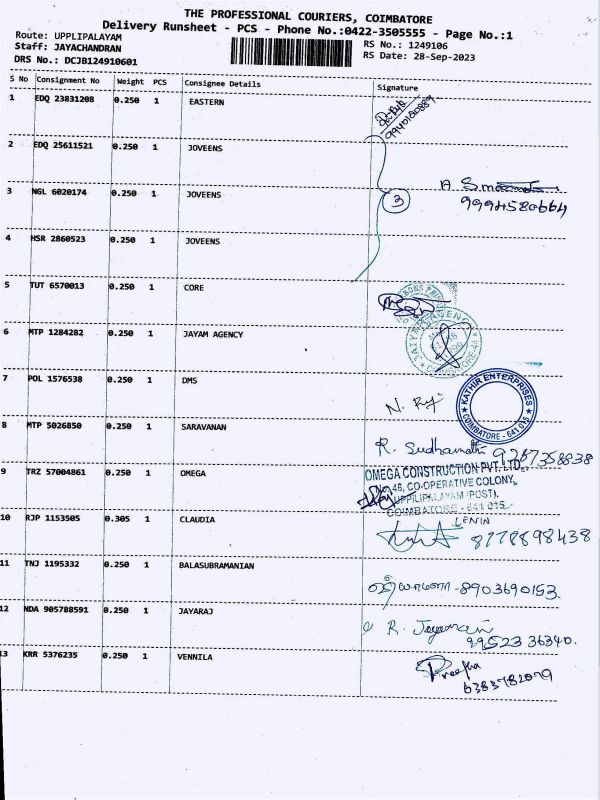 THE PROFESSIONAL COURIERS, COIMBATORE
Delivery Runsheet - PCS - Phone No.:0422-3505555 - Page No.:1
Route: UPPLIPALAYAM
RS No.: 1249106
Staff: JAYACHANDRAN
RS Date: 28-Sep-2023
DRS No.: DCJB124910601
S No Consignment No Weight PCS Consignee Details Signature
1 EDQ 23831208 0.250 1 EASTERN
2 EDQ 25611521 0.250 1 JOVEENS
3 NGL 6020174 0.250 1 JOVEENS 3
9994580664
4 HSR 2860523 0.250 1 JOVEENS
5 TUT 6570013 0.250 1 CORE
6 MTP 1284282 0.250 1 JAYAM AGENCY
7 POL 1576538 0.250 1 DMS
KATHIR ENTERPRISES
COIMBATORE - 641 015
8 MTP 5026850 0.250 1 SARAVANAN R. Sudhamathi 9287358838
9 TRZ 57004861 0.250 1 OMEGA
OMEGA CONSTRUCTION PVT. LTD.,
No.46, CO-OPERATIVE COLONY,
UPPILIPALAYAM (POST),
COIMBATORE - 641 015.
10 RJP 1153505 0.305 1 CLAUDIA LENIN
8778898438
11 TNJ 1195332 0.250 1 BALASUBRAMANIAN
-8903690153
12 NDA 905788591 0.250 1 JAYARAJ R. Jayaman
99523 36340.
13 KRR 5376235 0.250 1 VENNILA Preetha
6383782079